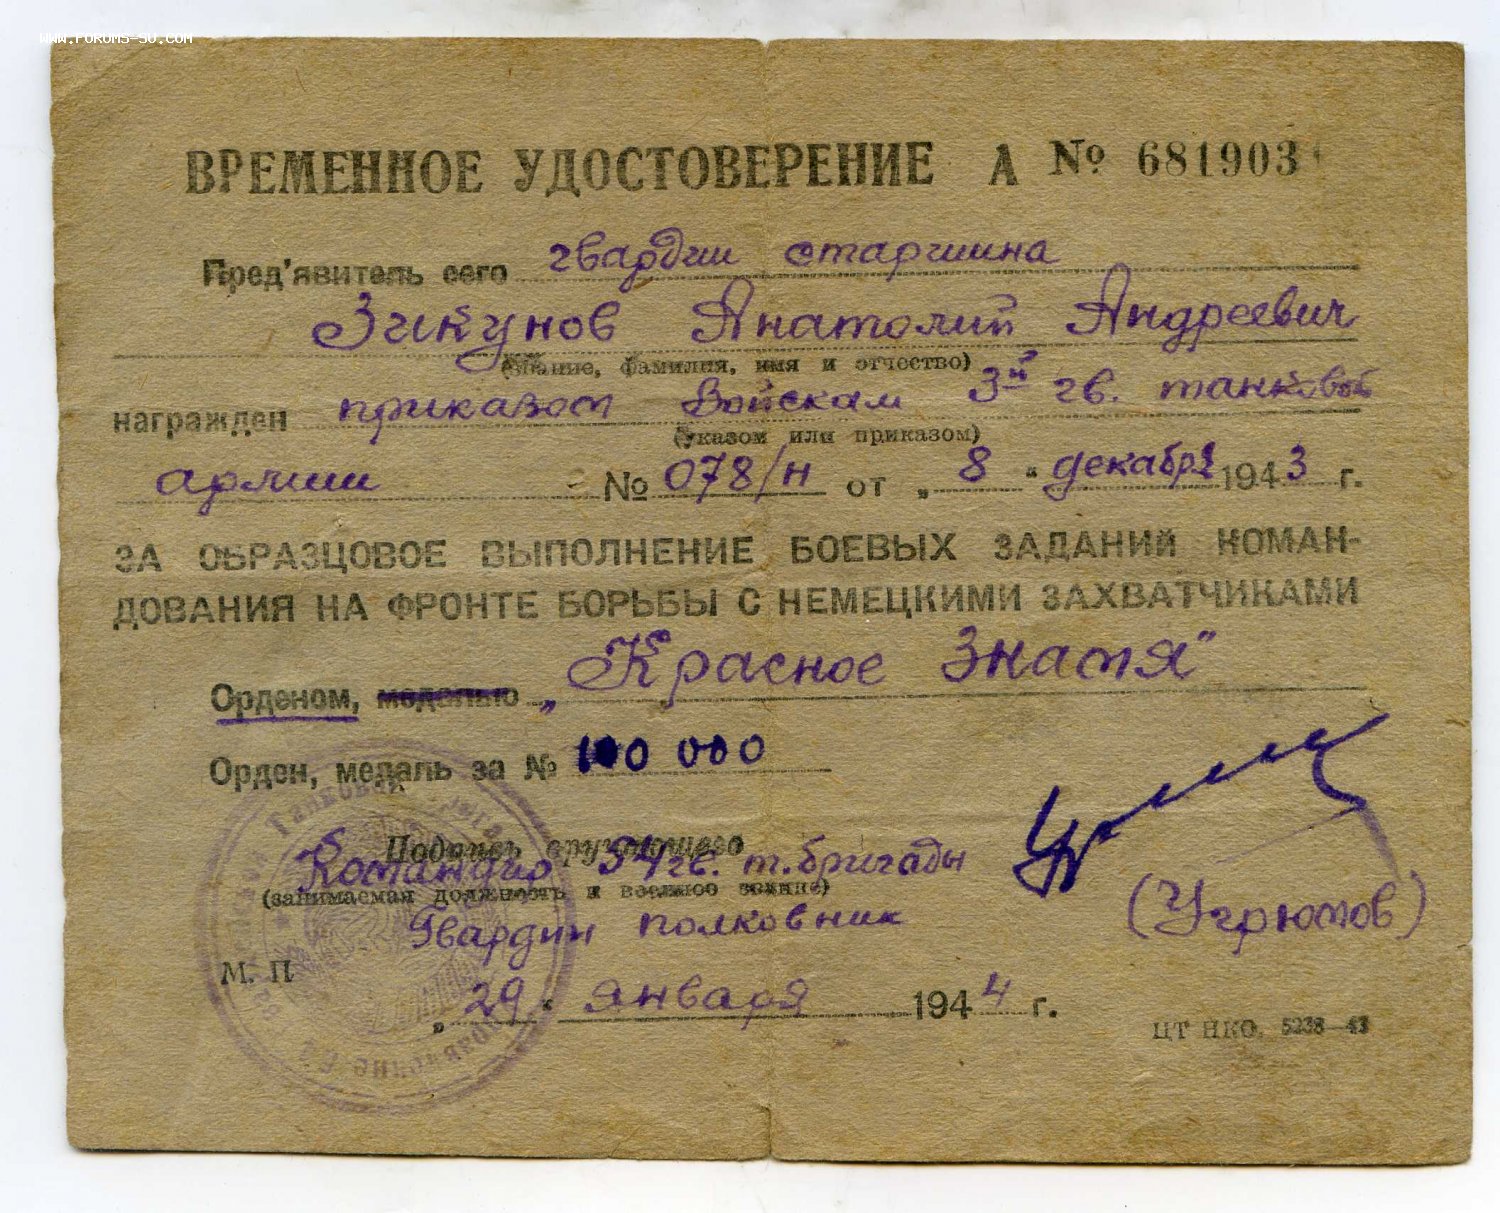 www.forums-su.com
ВРЕМЕННОЕ УДОСТОВЕРЕНИЕ А № 681903
Пред'явитель сего гвардии старшина
Зикунов Анатолий Андреевич
(звание, фамилия, имя и отчество)
награжден приказом Войскам 3й гв. танковой
(указом или приказом)
армии № 078/н от „ 8 " декабря 1943 г.
ЗА ОБРАЗЦОВОЕ ВЫПОЛНЕНИЕ БОЕВЫХ ЗАДАНИЙ КОМАН-
ДОВАНИЯ НА ФРОНТЕ БОРЬБЫ С НЕМЕЦКИМИ ЗАХВАТЧИКАМИ
Орденом, медалью „Красное Знамя"
Орден, медаль за № 100 000
Подпись вручающего
Командир 54 гв. т. бригады
(занимаемая должность и военное звание)
Гвардии полковник
(Угрюмов)
М. П
„ 29 " января 1944 г.
ЦТ НКО. 5238—43